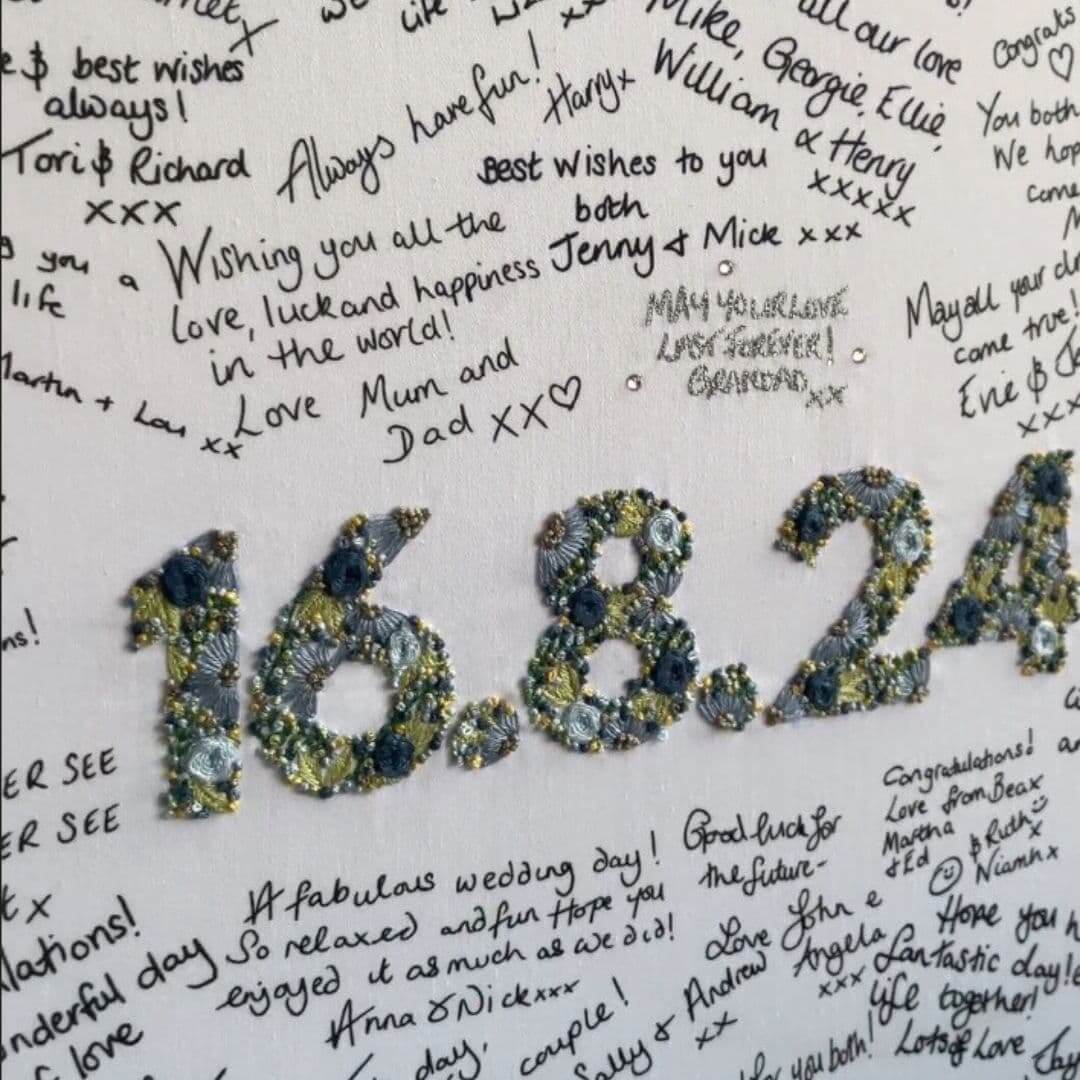 & best wishes
always!
Tori & Richard
xxx
Always have fun!
Harry x
all our love
Mike, Georgie, Ellie,
William & Henry
xxxxx
Congrats
You both
We hop
come
Best Wishes to you
both
Jenny & Mick xxx
you a
life
Martin + Lou
xx
Wishing you all the
love, luck and happiness
in the world!
Love Mum and
Dad xx♡
MAY YOUR LOVE
LAST FOREVER!
GRANDAD
xx
May all your
come true!
Evie &
xxx
16.8.24
ER SEE
ER SEE
x
lations!
nderful day
love
A fabulous wedding day!
So relaxed and fun Hope you
enjoyed it as much as we did!
Anna & Nick xxx
Good luck for
the future-
Love John &
Angela
xxx
Congratulations!
Love from Bea x
Martha & Ruth x
& Ed ☺ Niamh x
day,
couple!
Sally & Andrew
xx
Hope you h
fantastic day!
life together!
Lots of Love
for you both!